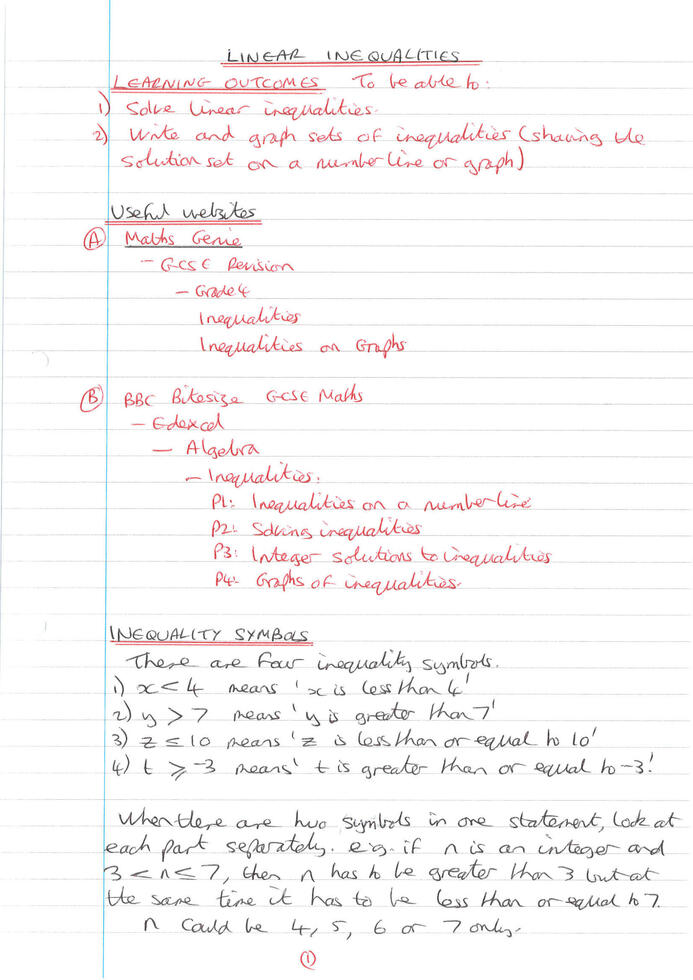 LINEAR INEQUALITIES
LEARNING OUTCOMES To be able to:
1) Solve linear inequalities.
2) Write and graph sets of inequalities (shaving the
solution set on a number line or graph)
Useful websites
(A) Maths Genie
- GCSE Revision
- Grade 4
Inequalities
Inequalities on Graphs
(B) BBC Bitesize GCSE Maths
- Edexcel
- Algebra
- Inequalities.
P1: Inequalities on a number line
P2: Solving inequalities
P3: Integer solutions to inequalities
P4: Graphs of inequalities.
INEQUALITY SYMBOLS
There are four inequality symbols.
1) x < 4 means 'x is less than 4'
2) y > 7 means 'y is greater than 7'
3) z ≤ 10 means 'z is less than or equal to 10'
4) t ⩾ -3 means 't is greater than or equal to -3'.
When there are two symbols in one statement, look at
each part separately. e.g. if n is an integer and
3 < n ≤ 7, then n has to be greater than 3 but at
the same time it has to be less than or equal to 7.
n could be 4, 5, 6 or 7 only.
(1)